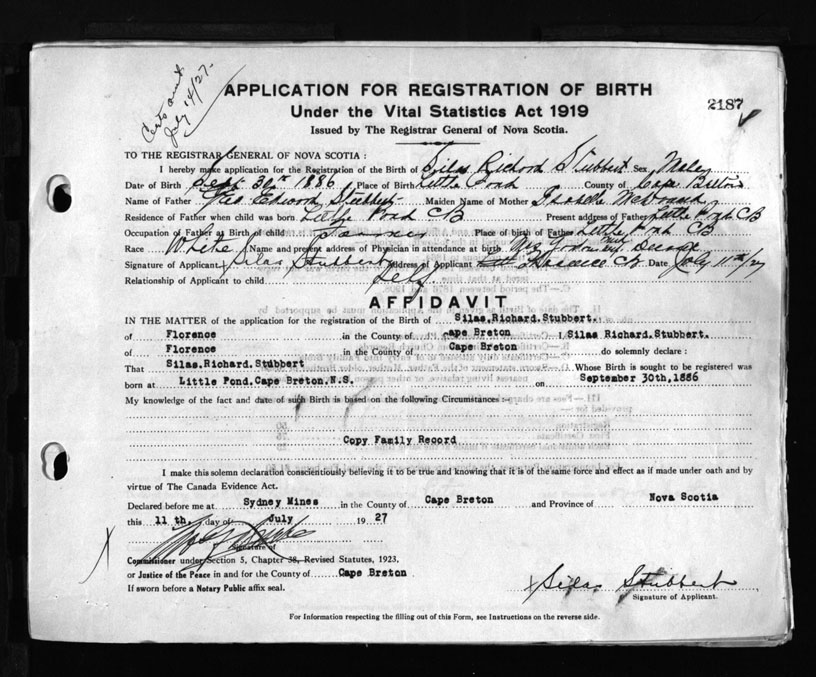 Certs out.
July 14/27.
APPLICATION FOR REGISTRATION OF BIRTH
2187
Under the Vital Statistics Act 1919
Issued by The Registrar General of Nova Scotia.
TO THE REGISTRAR GENERAL OF NOVA SCOTIA :
I hereby make application for the Registration of the Birth of Silas Richard Stubbert Sex Male
Date of Birth Sept 30th 1886 Place of Birth Little Pond County of Cape Breton
Name of Father Edword Stubbert Maiden Name of Mother
Residence of Father when child was born Little Pond CB Present address of Father Little Pond CB
Occupation of Father at Birth of child Farmer Place of birth of Father Little Pond CB
Race White Name and present address of Physician in attendance at birth Mrs Gordon
Signature of Applicant Silas Stubbert Address of Applicant Florence CB Date July 11th/27
Relationship of Applicant to child Self
AFFIDAVIT
IN THE MATTER of the application for the registration of the Birth of Silas.Richard.Stubbert.
of Florence in the County of ape Breton I, Silas Richard.Stubbert.
of Florence in the County of Cape Breton do solemnly declare :
That Silas.Richard.Stubbert Whose Birth is sought to be registered was
born at Little Pond.Cape Breton.N.S. on September 30th,1886
My knowledge of the fact and date of such Birth is based on the following Circumstances :-
Copy Family Record
I make this solemn declaration conscientiously believing it to be true and knowing that it is of the same force and effect as if made under oath and by
virtue of The Canada Evidence Act.
Declared before me at Sydney Mines in the County of Cape Breton and Province of Nova Scotia
this 11 th. day of July 1927
Signature of
Commissioner under Section 5, Chapter 38, Revised Statutes, 1923,
or Justice of the Peace in and for the County of Cape Breton
If sworn before a Notary Public affix seal.
X Silas Stubbert
Signature of Applicant.
For Information respecting the filling out of this Form, see Instructions on the reverse side.